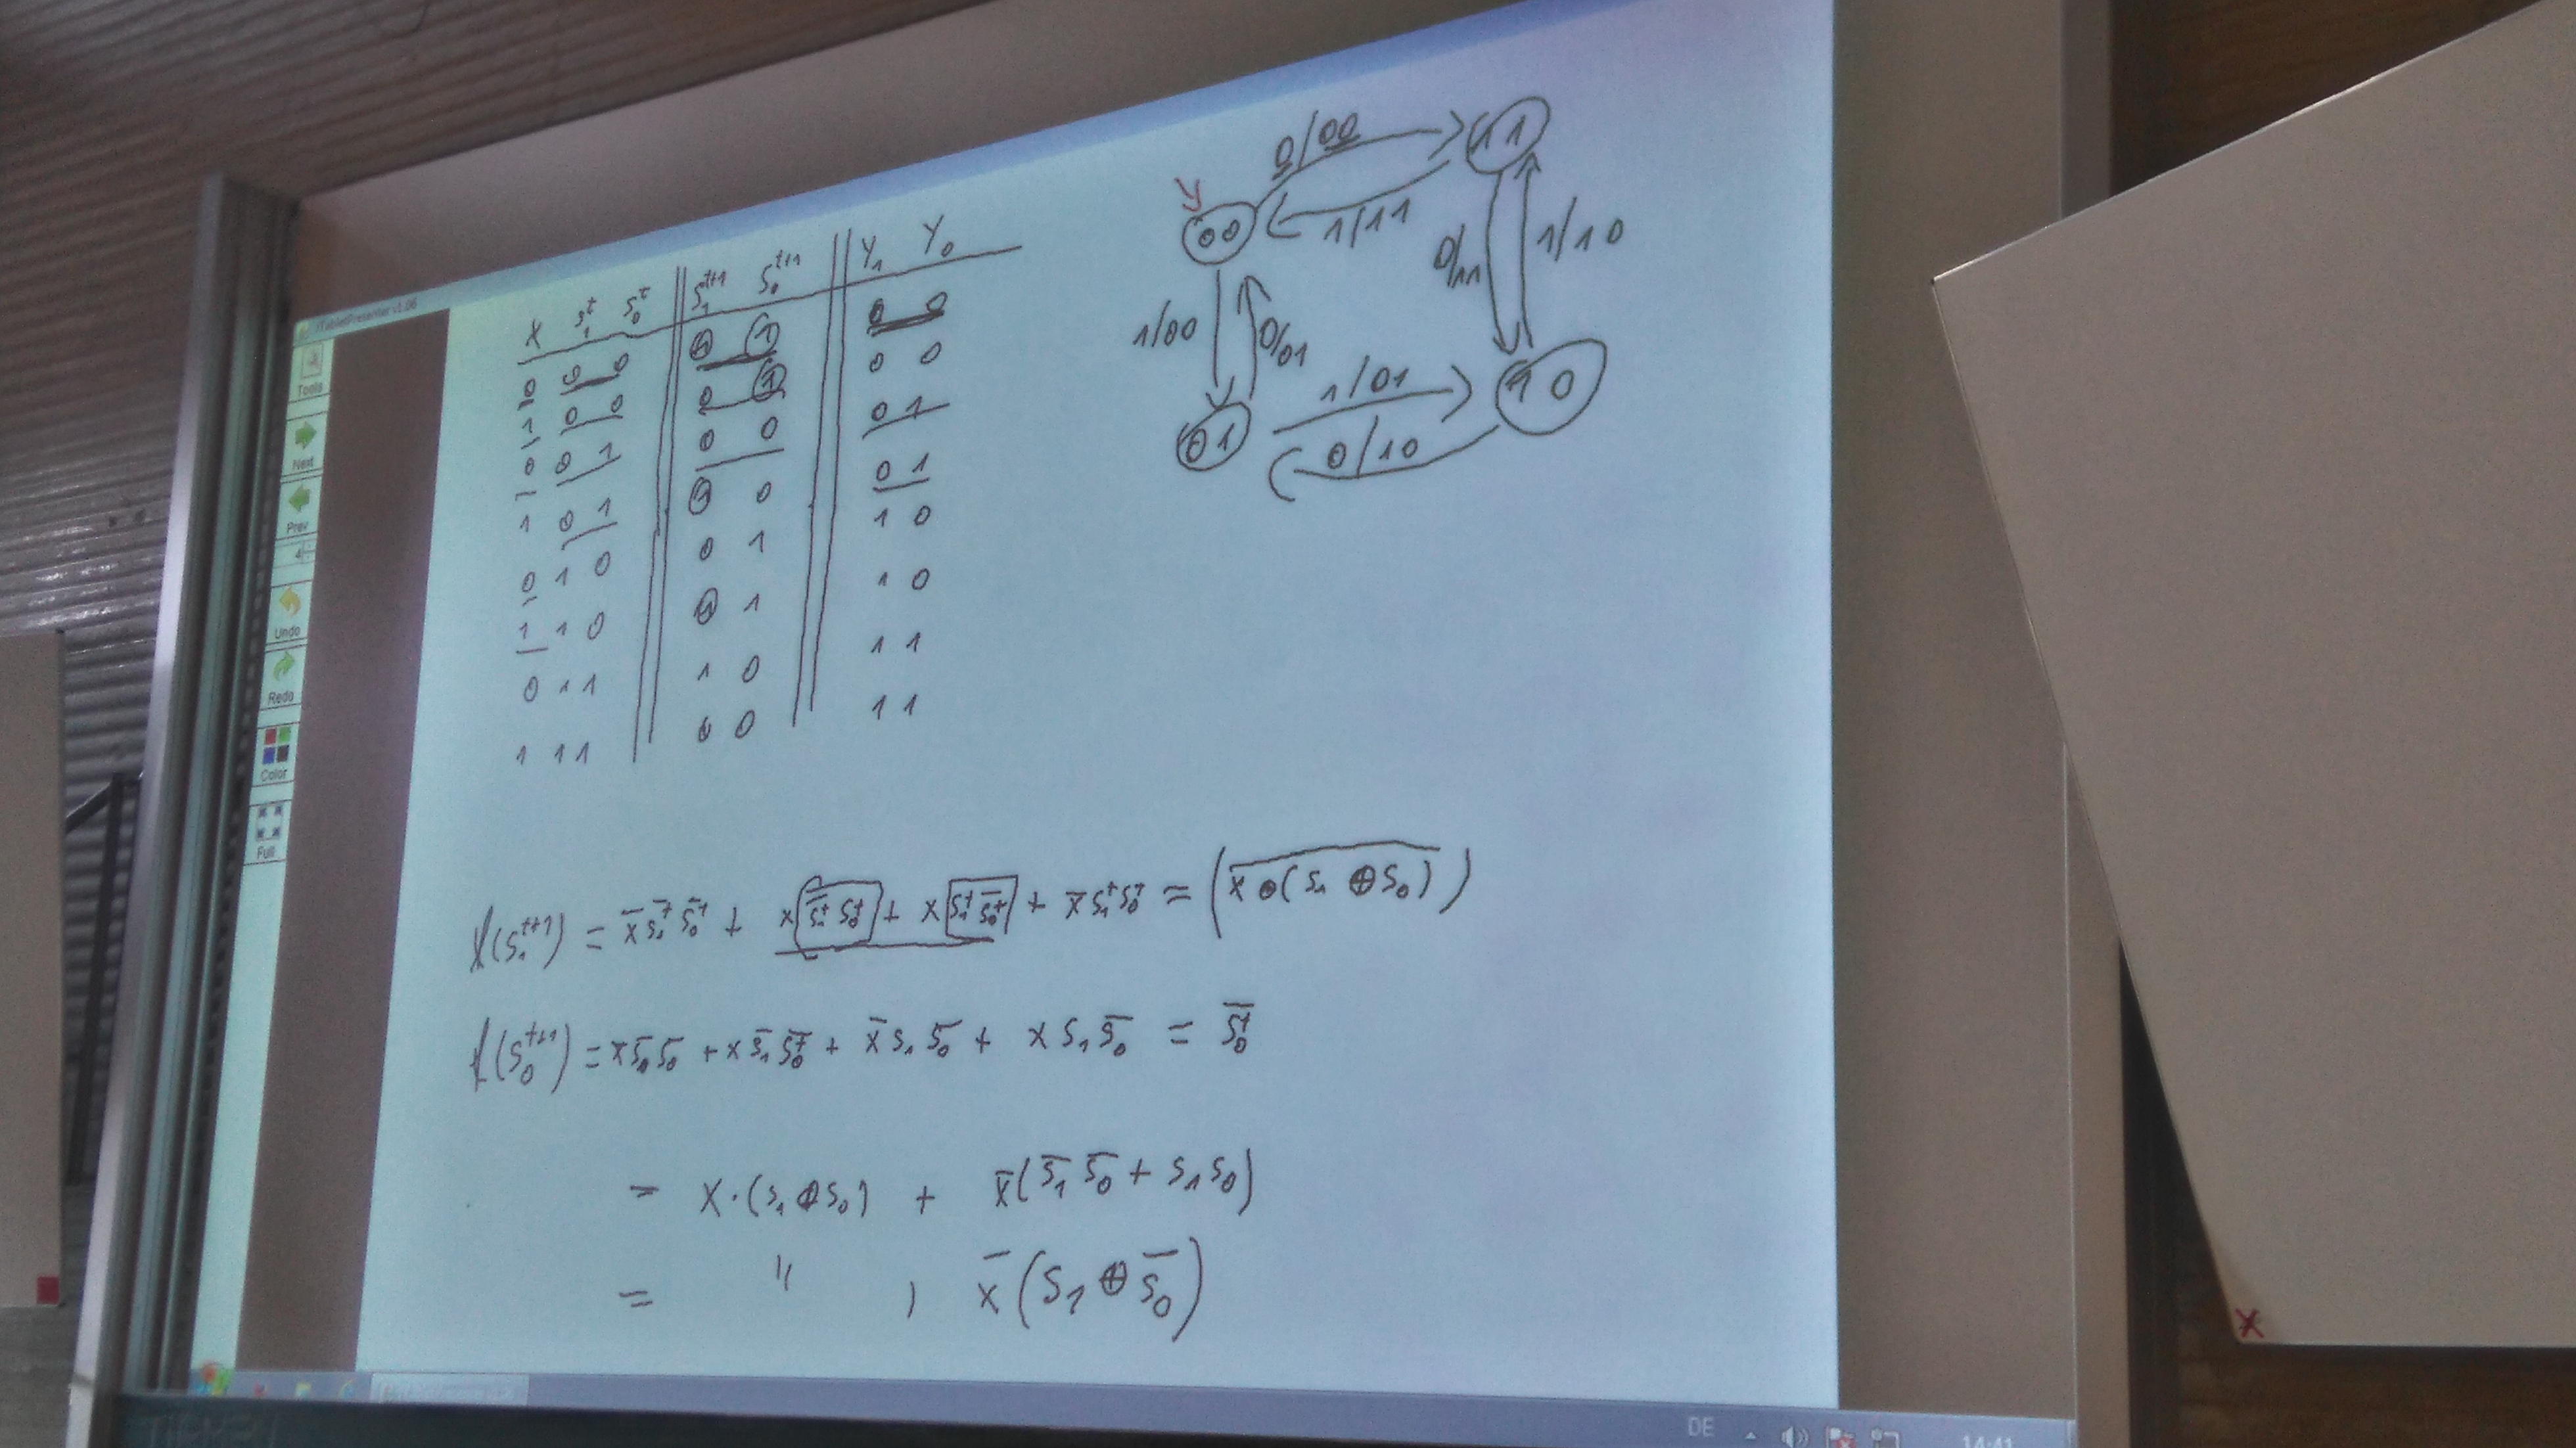 TabletPresenter v1.06
Tools
Next
Prev
4
Undo
Redo
Color
Full
X S₁ᵗ S₀ᵗ S₁ᵗ⁺¹ S₀ᵗ⁺¹ Y₁ Y₀
0 0 0 1 1 0 0
1 0 0 0 1 0 0
0 0 1 0 0 0 1
1 0 1 1 0 0 1
0 1 0 0 1 1 0
1 1 0 1 1 1 0
0 1 1 1 0 1 1
1 1 1 0 0 1 1
0/00
11
00
1/11
0/11
1/10
1/00
0/01
1/01
10
01
0/10
f(S₁ᵗ⁺¹) = x̄ s̄₁ᵗ s̄₀ᵗ + x s̄₁ᵗ s₀ᵗ + x s₁ᵗ s̄₀ᵗ + x̄ s₁ᵗ s₀ᵗ = (x̅ ̅⊕̅ ̅(̅s̅₁̅ ̅⊕̅ ̅s̅₀̅)̅)
f(S₀ᵗ⁺¹) = x̄ s̄₁ s̄₀ + x s̄₁ s̄₀ᵗ + x̄ s₁ s̄₀ + x s₁ s̄₀ = s̄₀ᵗ
= x·(s₁ ⊕ s₀) + x̄(s̄₁ s̄₀ + s₁ s₀)
= " , x̄(s₁ ⊕ s̄₀)
DE 14:41
X